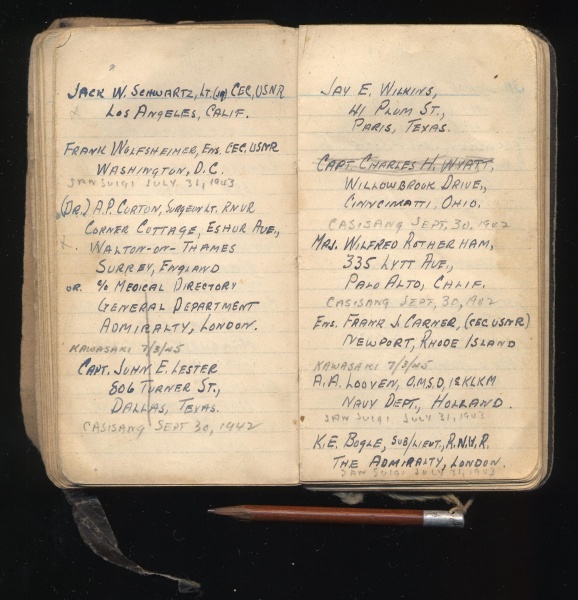 Jack W. Schwartz, Lt.(jg) CEC, USNR
x Los Angeles, Calif.
Frank Wolfsheimer, Ens. CEC, USNR
Washington, D.C.
Jan Suigi July 31, 1943
(Dr.) A.P. Curton, Surgeon Lt. RNVR
Corner Cottage, Eshur Ave.,
x Walton-on-Thames
Surrey, England
or c/o Medical Directory
General Department
Admiralty, London.
Kawasaki 7/3/45
Capt. John E. Lester
806 Turner St.,
Dallas, Texas.
Casisang Sept 30, 1942
Jay E. Wilkins,
41 Plum St.,
Paris, Texas.
Capt. Charles H. Wyatt,
Willowbrook Drive,
Cinncimati, Ohio.
Casisang Sept. 30, 1942
Mrs. Wilfred Rotherham,
335 Lytt Ave.,
Palo Alto, Calif.
Casisang Sept, 30, 1942
Ens. Frank J. Carner, (CEC, USNR)
Newport, Rhode Island
Kawasaki 7/3/45
A.A. Looyen, O.M.S.D, 1e KLKM
Navy Dept., Holland.
Jan Suigi July 31, 1943
K.E. Bogle, Sub/Lieut., R.N.V.R.
The Admiralty, London.
Jan Suigi July 31, 1943